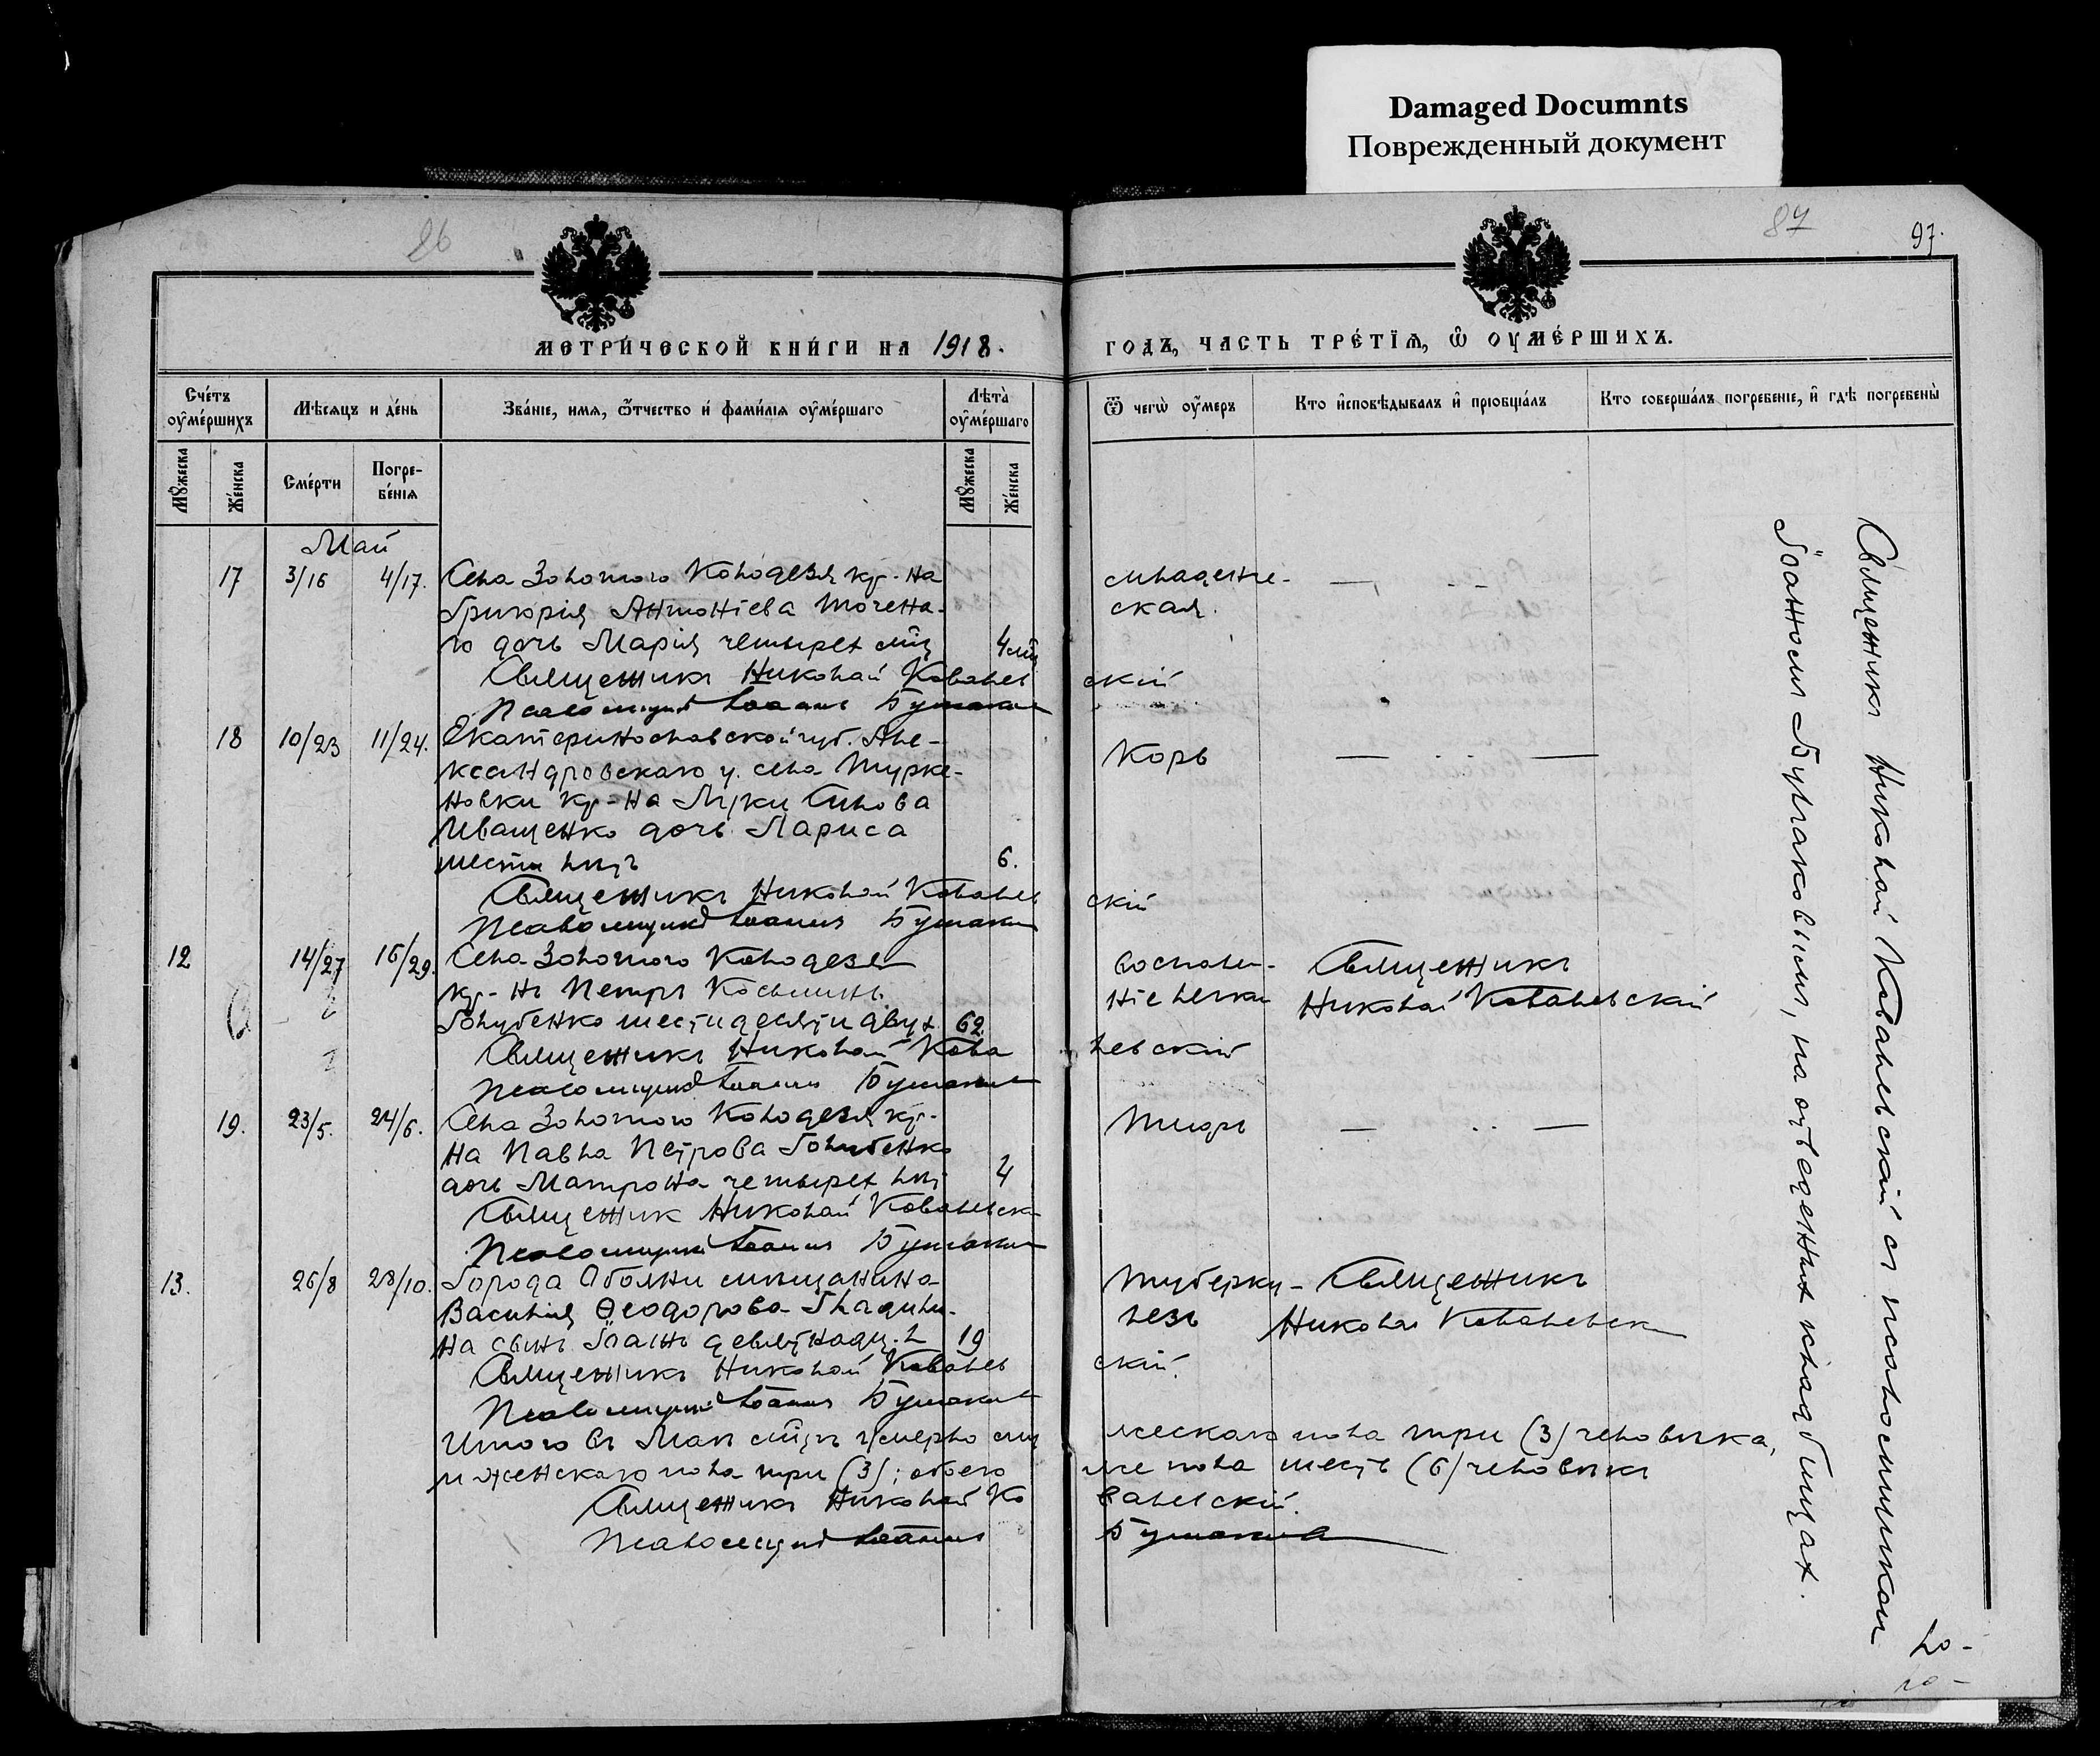 Damaged Documnts
Поврежденный документ
86
87
97.
МЕТРИ́ЧЕСКОЙ КНИ́ГИ НА 1918.
ГОДЪ, ЧАСТЬ ТРЕ́ТЇѦ, Ѡ҆ ОУМЕ́РШИХЪ.
Сче́тъ оу҆ме́ршихъ
Мѣ́сѧцъ и де́нь
Зва́нїе, имѧ, ѿтчество и҆ фами́лїѧ оу҆ме́ршаго
Лѣта̀ оу҆ме́ршаго
Ѿ чегѡ̀ оу҆́меръ
Кто и҆сповѣ́дывалъ и҆ прїобща́лъ
Кто соверша́лъ погребе́нїе, и҆ гдѣ̀ погребены̀
Мꙋ́жеска
Же́нска
Сме́рти
Погребе́нїѧ
Мꙋ́жеска
Же́нска
Май
17 3/16 4/17. Села Золотого Колодезя кр-на
Григорія Антоніева Точена-
го дочь Марія четырех мц 4 мц
младенче-
ская.
Священникъ Николай Ковалев
скій
Псаломщикъ Іоаннъ
18 10/23 11/24. Екатеринославской губ. Але-
ксандровскаго у. села Турке-
новки кр-на Луки
Иващенко дочь Лариса
шести лѣтъ 6.
Корь
Священникъ Николай Ковалев
скій
Псаломщикъ Іоаннъ
12 14/27 16/29. Села Золотого Колодезя
кр-нъ Петръ Косьминъ
Голубенко шестидесяти двух 62.
воспале-
ніе легки
Священникъ
Николай Ковалевскій
Священникъ Николай Кова
левскій
Псаломщикъ Іоаннъ
19. 23/5. 24/6. Села Золотого Колодезя кр-
на Павла Петрова Голубенко
дочь Матрона четырех лѣт 4
Тифъ
Священник Николай Ковалевск
Псаломщикъ Іоаннъ
13. 26/8 28/10. Города Обояни мѣщанина
Василія Ѳеодорова
на сынъ Іоаннъ девятнадц. л 19
Туберку-
лезъ
Священникъ
Николай Ковалевск
Священникъ Николай Ковалев
скій.
Псаломщикъ Іоаннъ
Итого въ Маѣ мцѣ умерло му
жескаго пола три (3) человѣка,
и женскаго пола три (3); обоего
же пола шесть (6) человѣкъ
Священникъ Николай Ко
валевскій.
Псаломщикъ Іоаннъ
Священникъ Николай Ковалевскій съ псаломщиком
Іоанном, на отведенных кладбищах.